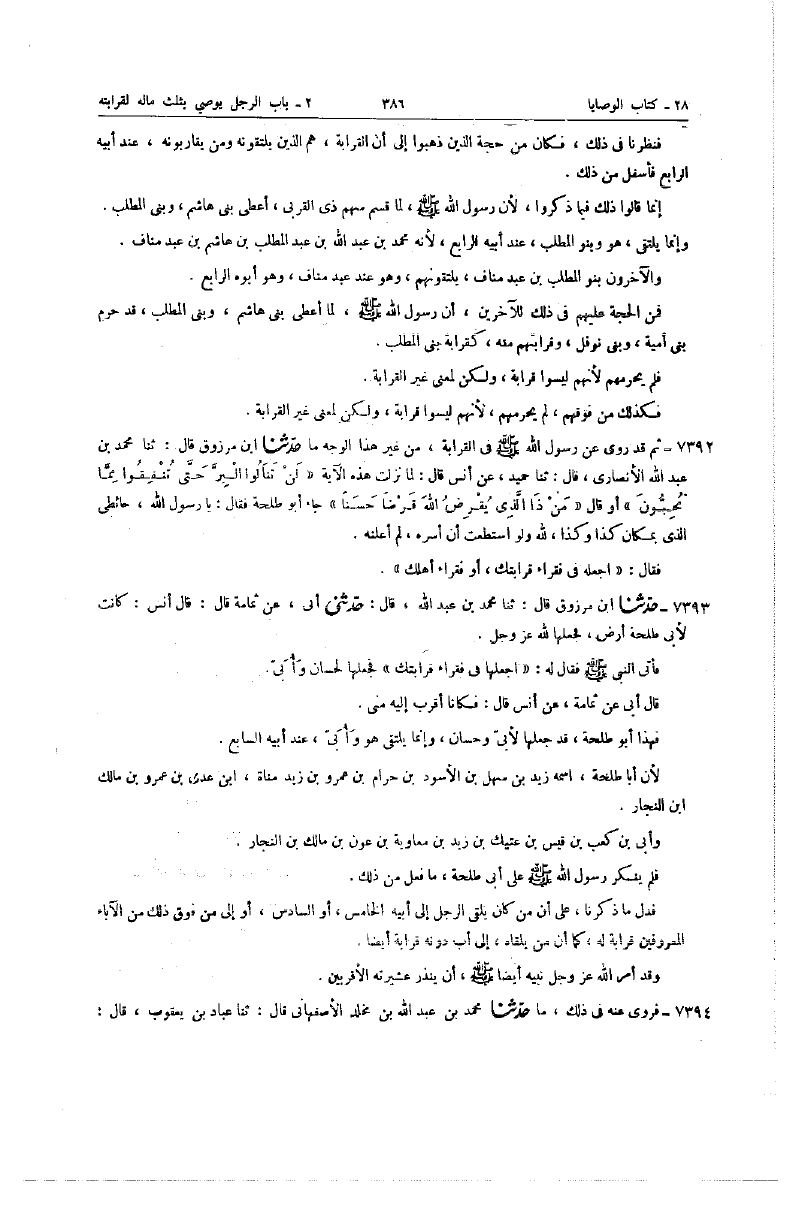 ٢٨ - كتاب الوصايا ٣٨٦ ٢ - باب الرجل يوصي بثلث ماله لقرابته
فنظرنا فى ذلك ، فكان من حجة الذين ذهبوا إلى أن القرابة ، هم الذين يلتقونه ومن يقاربونه ، عند أبيه
الرابع فأسفل من ذلك .
إنما قالوا ذلك فيما ذكروا ، لأن رسول الله ﷺ ، لما قسم سهم ذى القربى ، أعطى بنى هاشم ، وبنى المطلب .
وإنما يلتقى ، هو وبنو المطلب ، عند أبيه الرابع ، لأنه محمد بن عبد الله بن عبد المطلب بن هاشم بن عبد مناف .
والآخرون بنو المطلب بن عبد مناف ، يلتقونهم ، وهو عند عبد مناف ، وهو أبوه الرابع .
فمن الحجة عليهم فى ذلك للآخرين ، أن رسول الله ﷺ ، لما أعطى بنى هاشم ، وبنى المطلب ، قد حرم
بنى أمية ، وبنى نوفل ، وقرابتهم منه ، كقرابة بنى المطلب .
فلم يحرمهم لأنهم ليسوا قرابة ، ولكن لمعنى غير القرابة .
فكذلك من فوقهم ، لم يحرمهم ، لأنهم ليسوا قرابة ، ولكن لمعنى غير القرابة .
٧٣٩٢ - ثم قد روى عن رسول الله ﷺ فى القرابة ، من غير هذا الوجه ما حدّثنا ابن مرزوق قال : ثنا محمد بن
عبد الله الأنصارى ، قال : ثنا حميد ، عن أنس قال : لما نزلت هذه الآية « لَنْ تَنَالُوا الْبِرَّ حَتَّى تُنْفِقُوا مِمَّا
تُحِبُّونَ » أو قال « مَنْ ذَا الَّذِى يُقْرِضُ اللهَ قَرْضًا حَسَنًا » جاء أبو طلحة فقال : يا رسول الله ، حائطى
الذى بمكان كذا وكذا ، لله ولو استطعت أن أسره ، لم أعلنه .
فقال : « اجعله فى فقراء قرابتك ، أو فقراء أهلك » .
٧٣٩٣ - حدّثنا ابن مرزوق قال : ثنا محمد بن عبد الله ، قال : حدّثنى أبى ، عن ثمامة قال : قال أنس : كانت
لأبى طلحة أرض ، فجعلها لله عز وجل .
فأتى النبى ﷺ فقال له : « اجعلها فى فقراء قرابتك » فجعلها لحسان وَأُبَىّ.
قال أبى عن ثمامة ، عن أنس قال : فكانا أقرب إليه منى .
فهذا أبو طلحة ، قد جعلها لأبىّ وحسان ، وإنما يلتقى هو وَأُبَىّ ، عند أبيه السابع .
لأن أبا طلحة ، اسمه زيد بن سهل بن الأسود بن حرام بن عمرو بن زيد مناة ، ابن عدى بن عمرو بن مالك
ابن النجار .
وأبى بن كعب بن قيس بن عتيك بن زيد بن معاوية بن عون بن مالك بن النجار .
فلم ينكر رسول الله ﷺ على أبى طلحة ، ما فعل من ذلك .
فدل ما ذكرنا ، على أن من كان يلقى الرجل إلى أبيه الخامس ، أو السادس ، أو إلى من فوق ذلك من الآباء
المعروفين قرابة له ، كما أن من يلقاه ، إلى أب دونه قرابة أيضا .
وقد أمر الله عز وجل نبيه أيضا ﷺ ، أن ينذر عشيرته الأقربين .
٧٣٩٤ - فروى عنه فى ذلك ، ما حدّثنا محمد بن عبد الله بن مخلد الأصفهانى قال : ثنا عباد بن يعقوب ، قال :